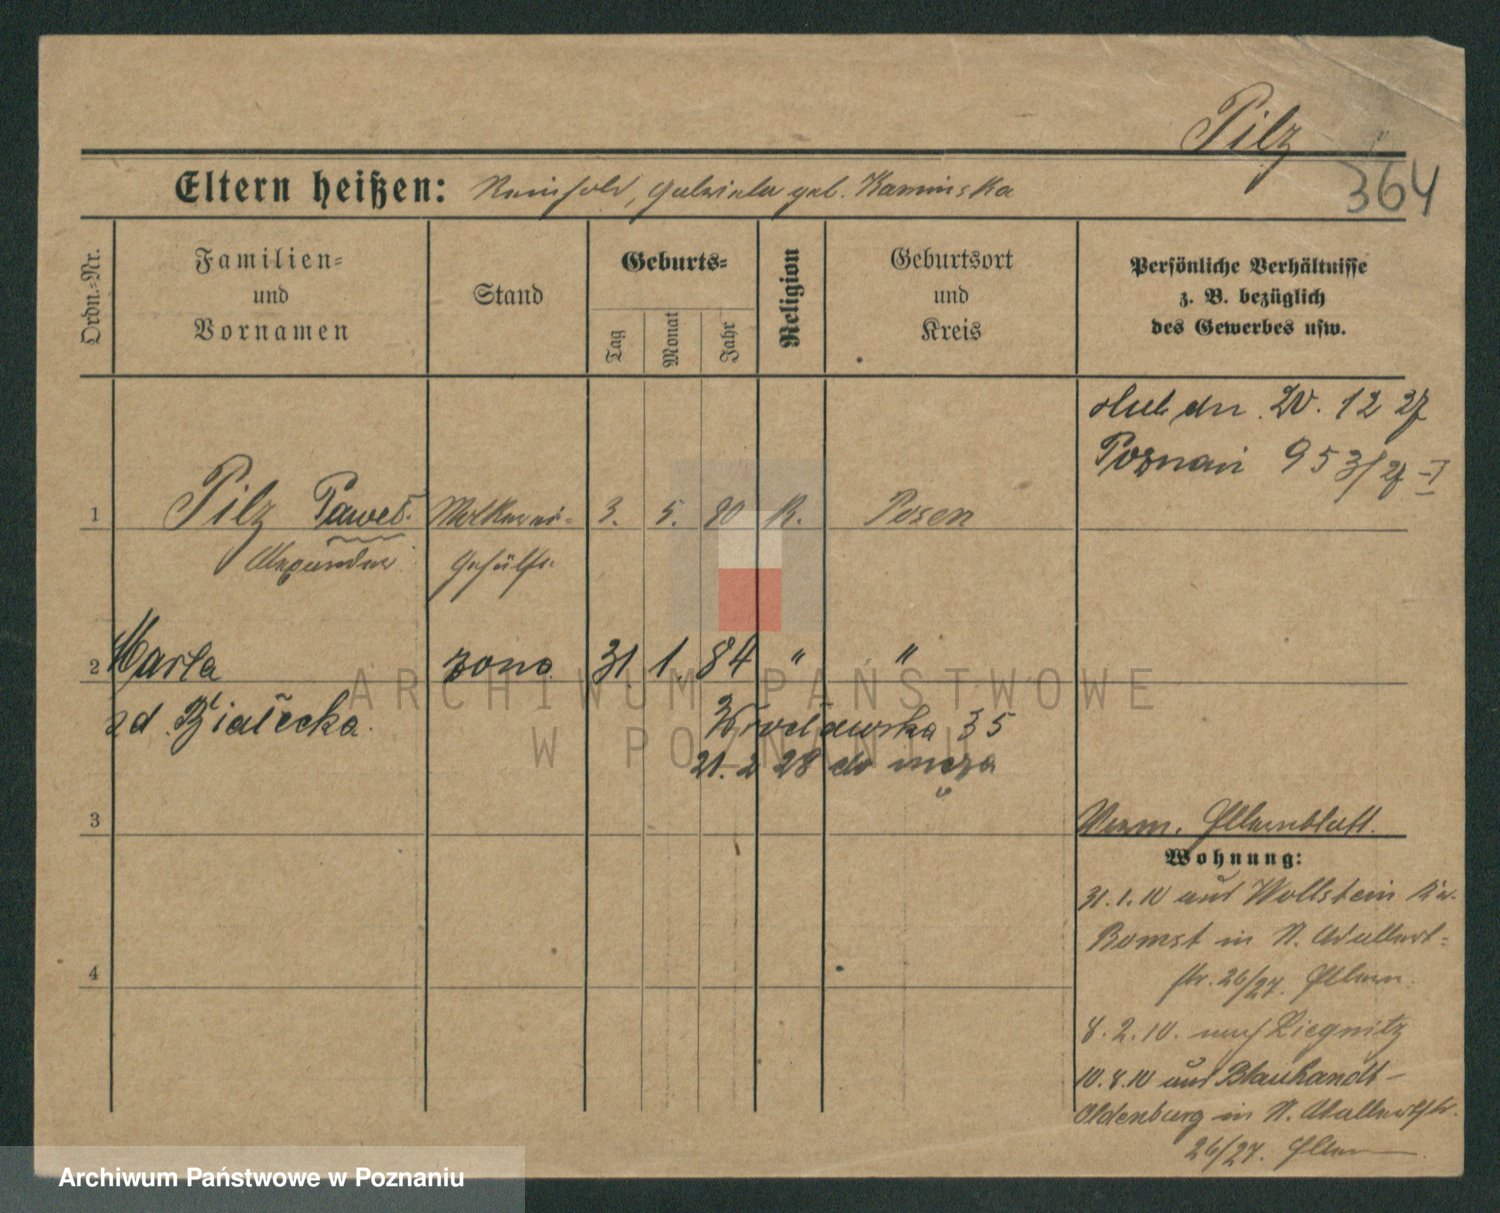 Pilz
364
Eltern heißen: Reinhold, Gabriela geb. Kaminska
Ordn.-Nr.
Familien-
und
Vornamen
Stand
Geburts-
Tag
Monat
Jahr
Religion
Geburtsort
und
Kreis
Persönliche Verhältnisse
z. B. bezüglich
des Gewerbes usw.
ślub dn. 20. 12 27
Poznań 953/27 I
1 Pilz Paweł 3. 5. 80 K. Posen
Alexander Gehülfe
2 Marta żona 31. 1. 84 " "
zd. Białecka.
Wrocławska 35
21. 2 28 do męża
3
Verm. Elternblatt.
Wohnung:
31.1.10 aus Wollstein Kr.
Bomst in N. Wallert-
str. 26/27. Eltern.
4
8.2.10. nach Liegnitz
10.8.10 aus
Oldenburg in N.
26/27. Eltern
ARCHIWUM PAŃSTWOWE
W POZNANIU
Archiwum Państwowe w Poznaniu